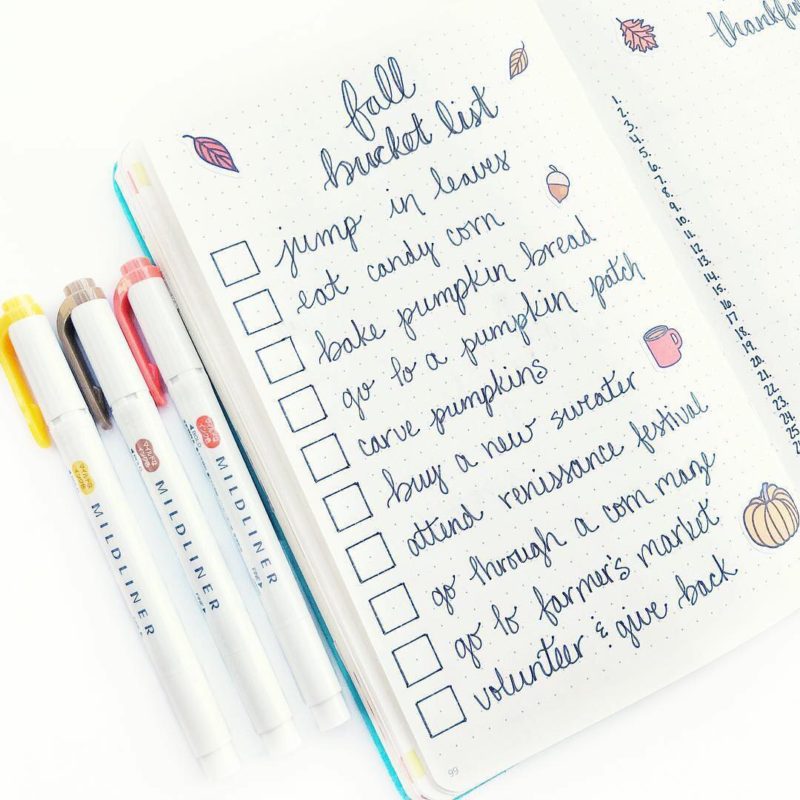 fall
bucket list
jump in leaves
eat candy corn
bake pumpkin bread
go to a pumpkin patch
carve pumpkins
buy a new sweater
attend renissance festival
go through a corn maze
go to farmer's market
volunteer & give back
99
1.
2.
3.
4.
5.
6.
7.
8.
9.
10.
11.
12.
13.
14.
15.
16.
17.
18.
19.
20.
21.
22.
23.
24.
25
MILDLINER
MILDLINER
MILDLINER